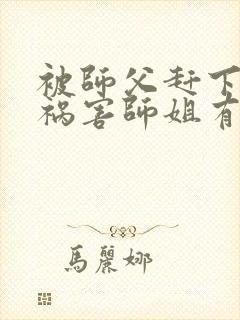 被師父赶下
祸害師姐有
馬麗娜